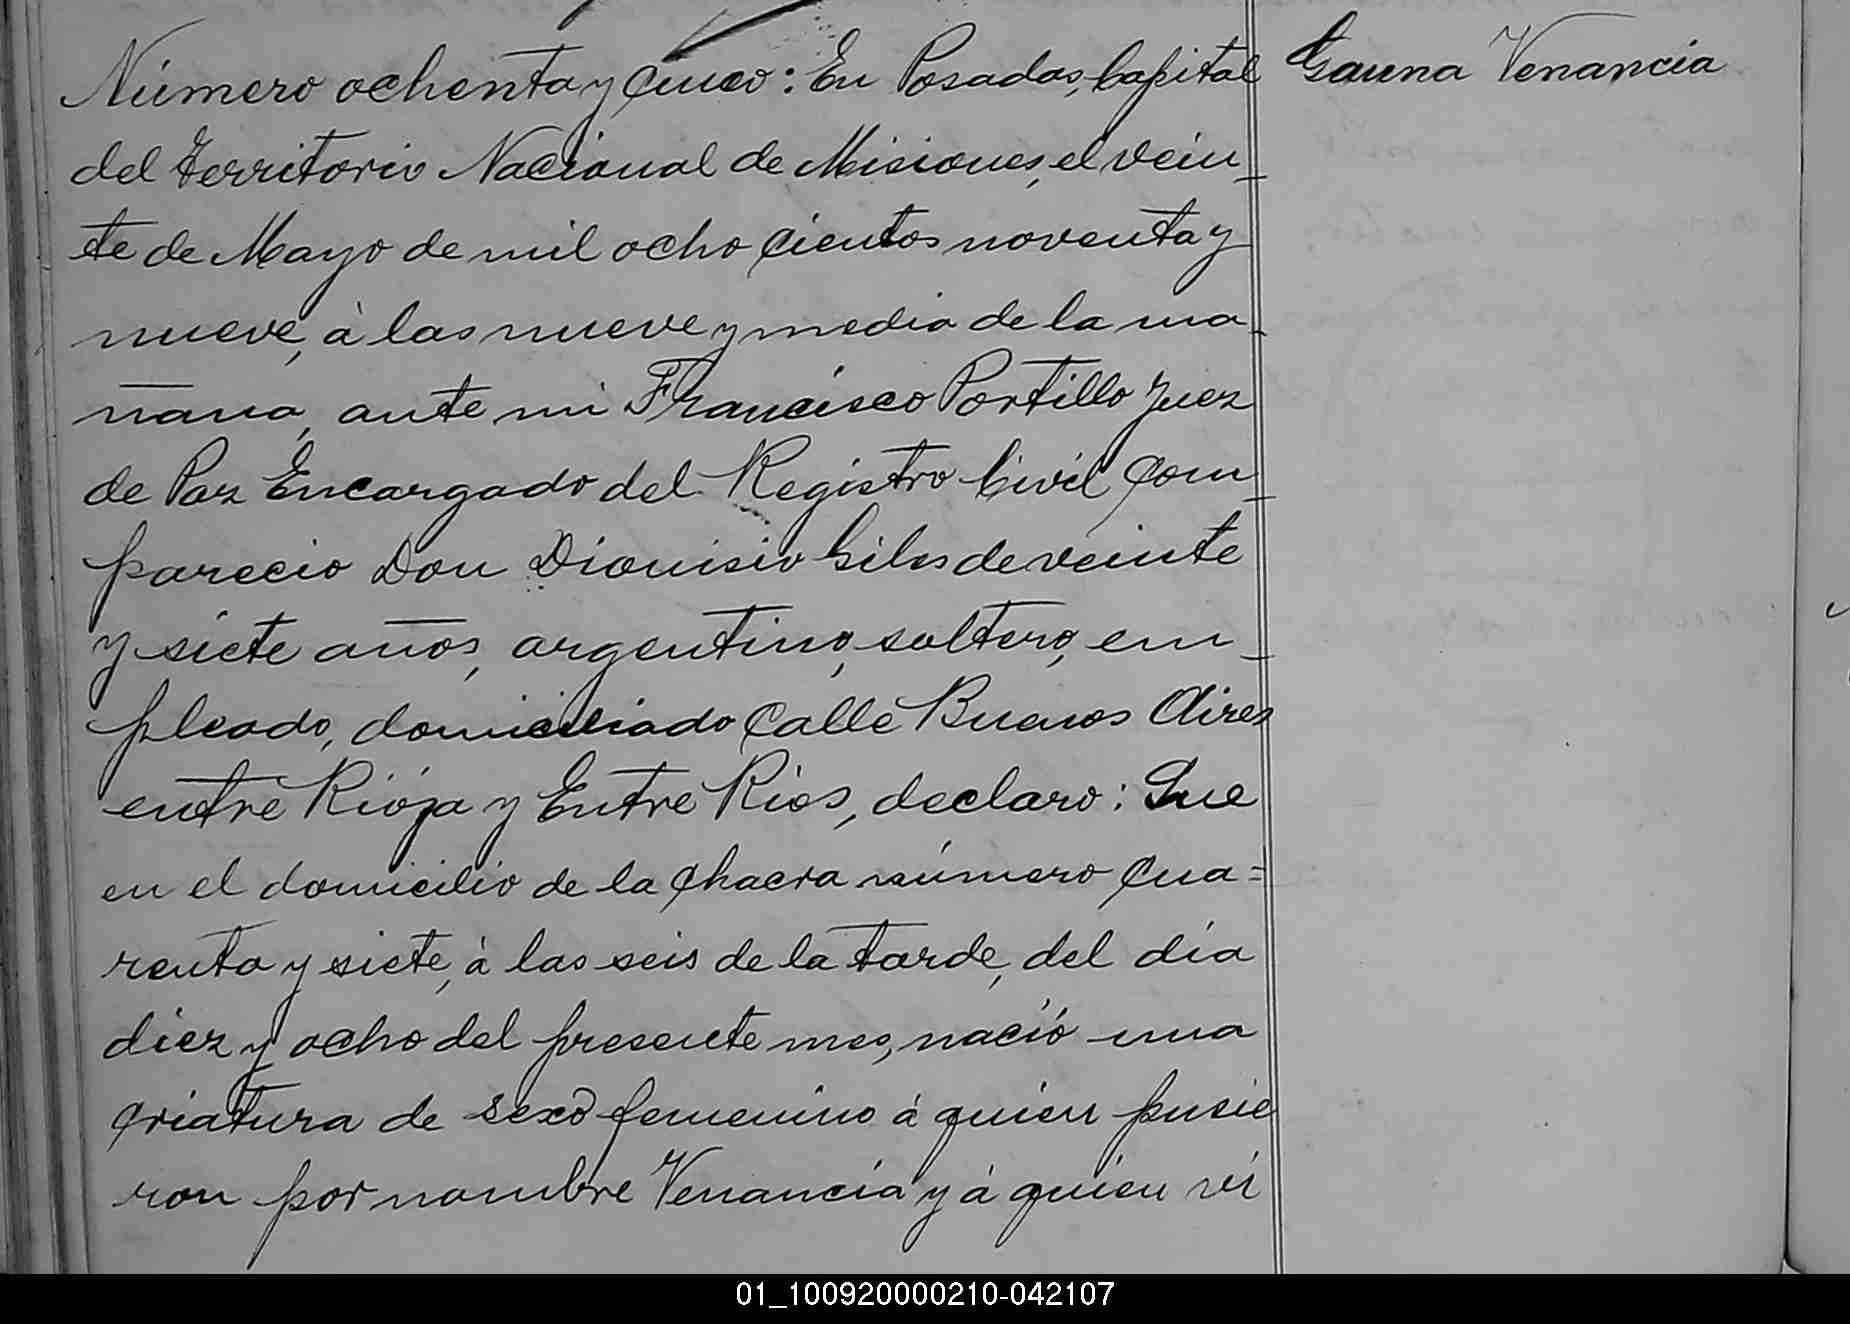 Número ochenta y cinco: En Posadas, Capital
Gauna Venancia
del Territorio Nacional de Misiones, el vein-
te de Mayo de mil ocho cientos noventa y
nueve, à las nueve y media de la ma-
ñana, ante mi Francisco Portillo Juez
de Paz Encargado del Registro Civil Com-
parecio Don Dionisio Giles de veinte
y siete años, argentino, soltero, em-
pleado, domiciliado Calle Buenos Aires
entre Riója y Entre Rios, declaro: Que
en el domicilio de la Chacra número Cua=
renta y siete, à las seis de la tarde, del día
diez y ocho del presente mes, nació una
Criatura de sexo femenino á quien pusie
ron por nombre Venancia y á quien ví
01_100920000210-042107